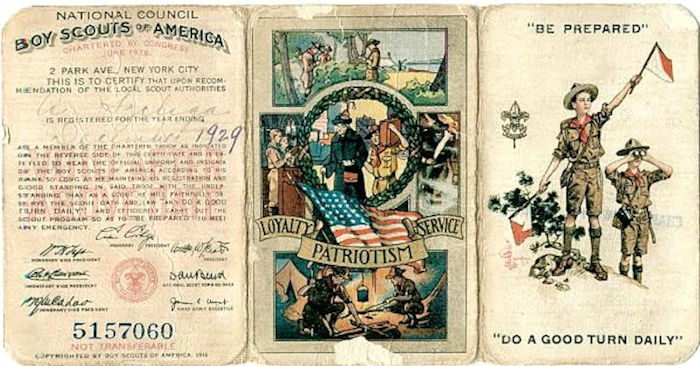 NATIONAL COUNCIL
BOY SCOUTS OF AMERICA
CHARTERED BY CONGRESS
JUNE 1916
2 PARK AVE., NEW YORK CITY
THIS IS TO CERTIFY THAT UPON RECOM-
MENDATION OF THE LOCAL SCOUT AUTHORITIES
IS REGISTERED FOR THE YEAR ENDING
1929
AS A MEMBER OF THE CHARTERED TROOP AS INDICATED
ON THE REVERSE SIDE OF THIS CERTIFICATE AND IS EN-
TITLED TO WEAR THE OFFICIAL UNIFORM AND INSIGNIA
OF THE BOY SCOUTS OF AMERICA ACCORDING TO HIS
RANK SO LONG AS HE MAINTAINS REGISTRATION AND
GOOD STANDING IN SAID TROOP WITH THE UNDER-
STANDING THAT AS A SCOUT HE WILL FAITHFULLY OB-
SERVE THE SCOUT OATH AND LAW AND "DO A GOOD
TURN DAILY" AND EFFICIENTLY CARRY OUT THE
SCOUT PROGRAM SO AS TO BE PREPARED TO MEET
ANY EMERGENCY.
HONORARY PRESIDENT
HONORARY VICE PRESIDENT
HONORARY VICE PRESIDENT
HONORARY VICE PRESIDENT
Dan Beard
NATIONAL SCOUT COMMISSIONER
HONORARY VICE PRESIDENT
James E. West
CHIEF SCOUT EXECUTIVE
5157060
NOT TRANSFERABLE
COPYRIGHTED BY BOY SCOUTS OF AMERICA, 1916
LOYALTY
PATRIOTISM
SERVICE
"BE PREPARED"
"DO A GOOD TURN DAILY"